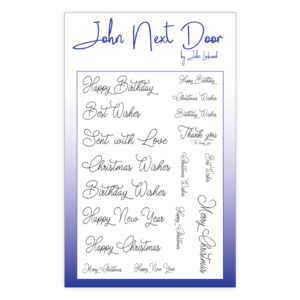 John Next Door
by John Lockwood
Happy Birthday
Best Wishes
Sent with Love
Christmas Wishes
Birthday Wishes
Happy New Year
Happy Christmas
Merry Christmas
Happy New Year
Happy Birthday
Christmas Wishes
Birthday Wishes
Thank you
Best Wishes
Christmas Wishes
Happy Christmas
Merry Christmas